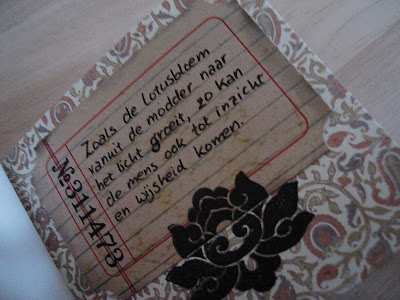 Zoals de lotusbloem
vanuit de modder naar
het licht groeit, zo kan
de mens ook tot inzicht
en wijsheid komen.
№311473